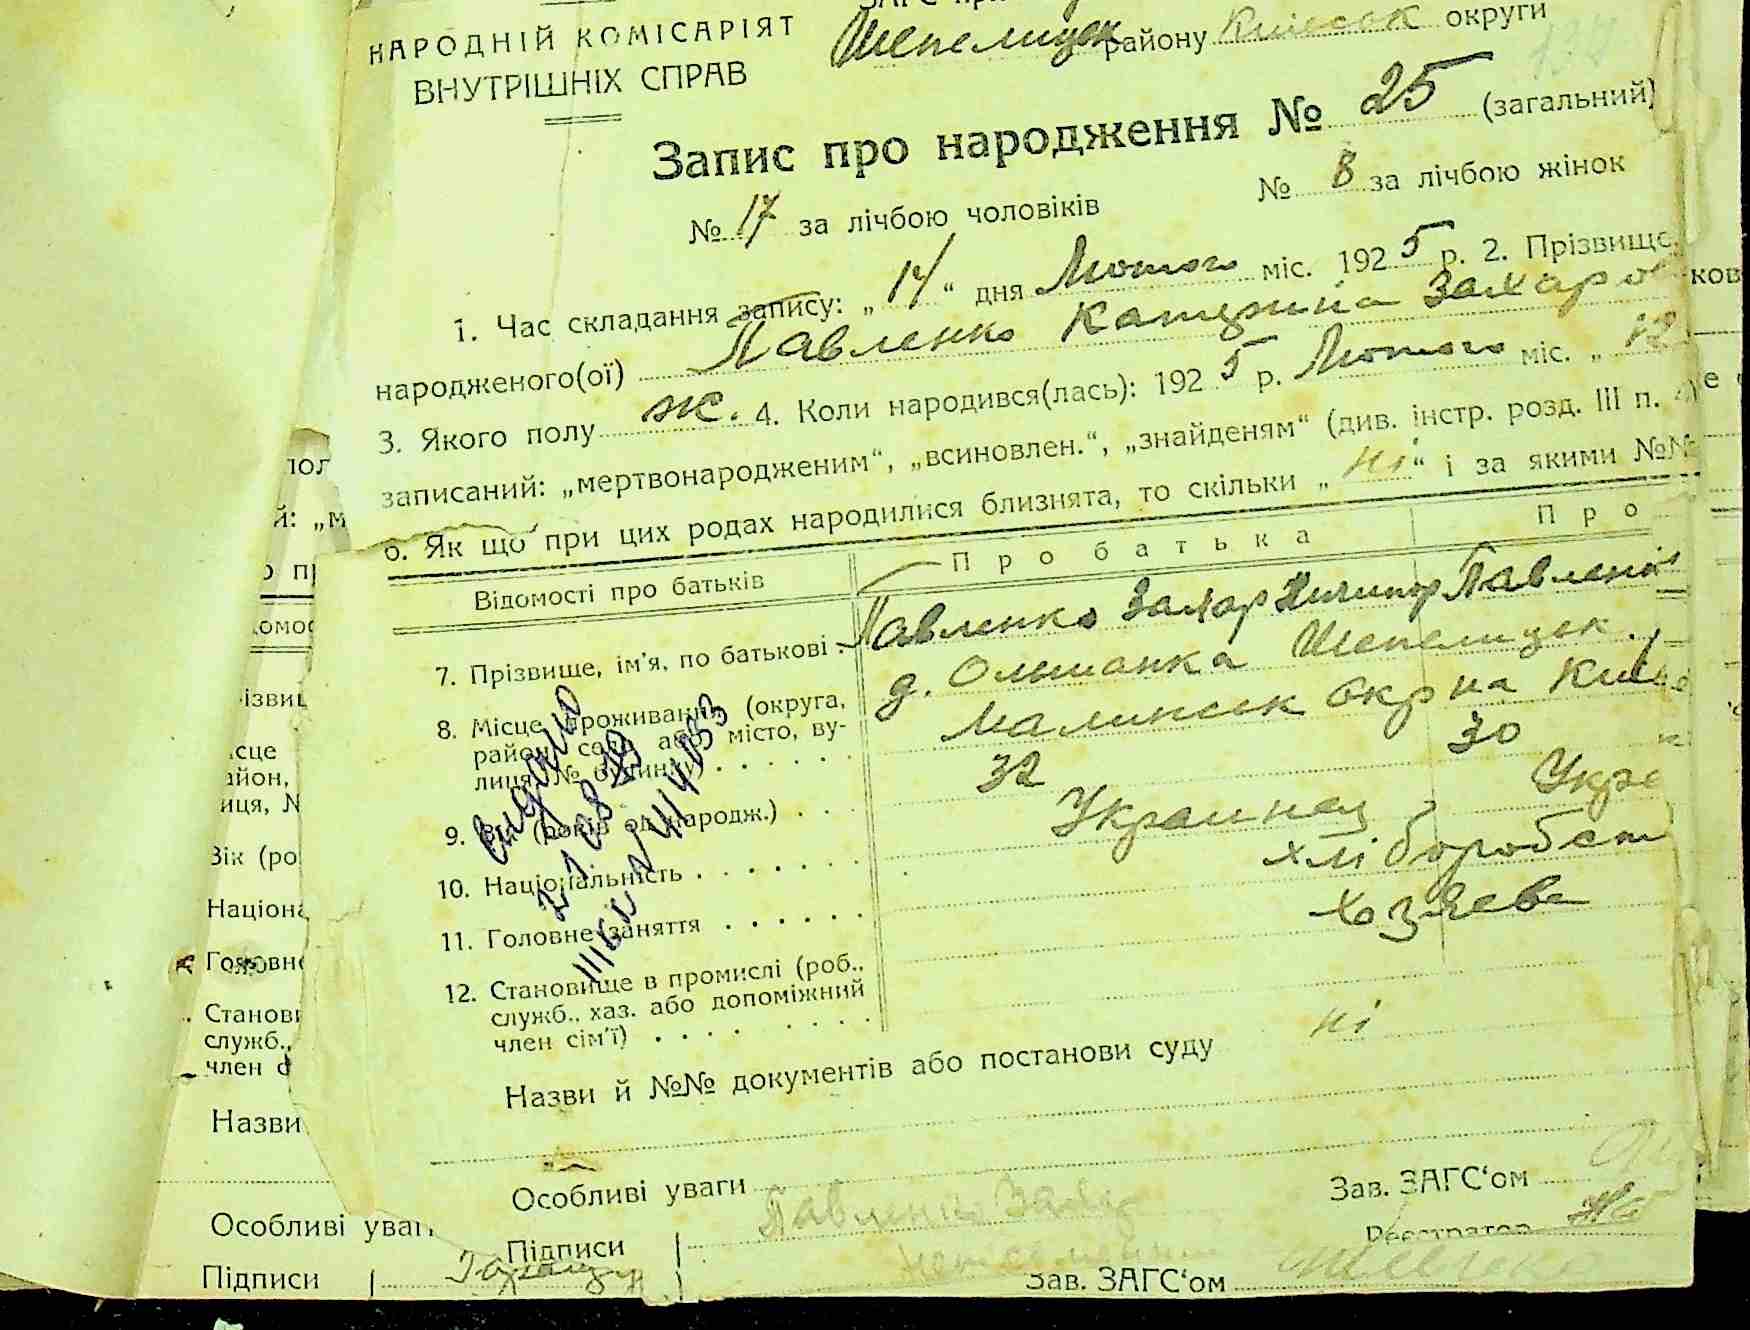 НАРОДНІЙ КОМІСАРІЯТ
ВНУТРІШНІХ СПРАВ
Шепелицьк району Київськ округи
Запис про народження № 25 (загальний)
№ 17 за лічбою чоловіків № 8 за лічбою жінок
1. Час складання запису: „14“ дня Лютого міс. 1925 р. 2. Прізвище,
народженого(ої) Павленко Катерина Захаро
3. Якого полу ж. 4. Коли народився(лась): 1925 р. Лютого міс. „12
записаний: „мертвонародженим“, „всиновлен.“, „знайденям“ (див. інстр. розд. III п. 4)
6. Як що при цих родах народилися близнята, то скільки „ні“ і за якими №№
Відомості про батьків Про батька Про
7. Прізвище, ім'я, по батькові . Павленко Захар Ничипор Павленк
8. Місце проживання (округа, д. Ольшанка Шепелицьк.
район, село або місто, ву- Малинськ окр на Київ
лиця, № будинку) . . . . . .
9. Вік (років од народж.) . . 32 30
10. Національність . . . . . . . Украинец Укра
11. Головне заняття . . . . . хліборобст
12. Становище в промислі (роб., хозяева
служб., хаз. або допоміжний
член сім'ї) . . . . . . . .
видано
21 08 29
Назви й №№ документів або постанови суду ні
Особливі уваги
Зав. ЗАГС‘ом
Підписи Павленко Захар
Реєстратор
неписьменний
Зав. ЗАГС‘ом
ков
пол
й: „м
о п
комос
різвищ
ісце
айон,
иця, №
Вік (ро
Націона
Головне
Станови
служб.,
член с
Назви
Особливі уваг
Підписи